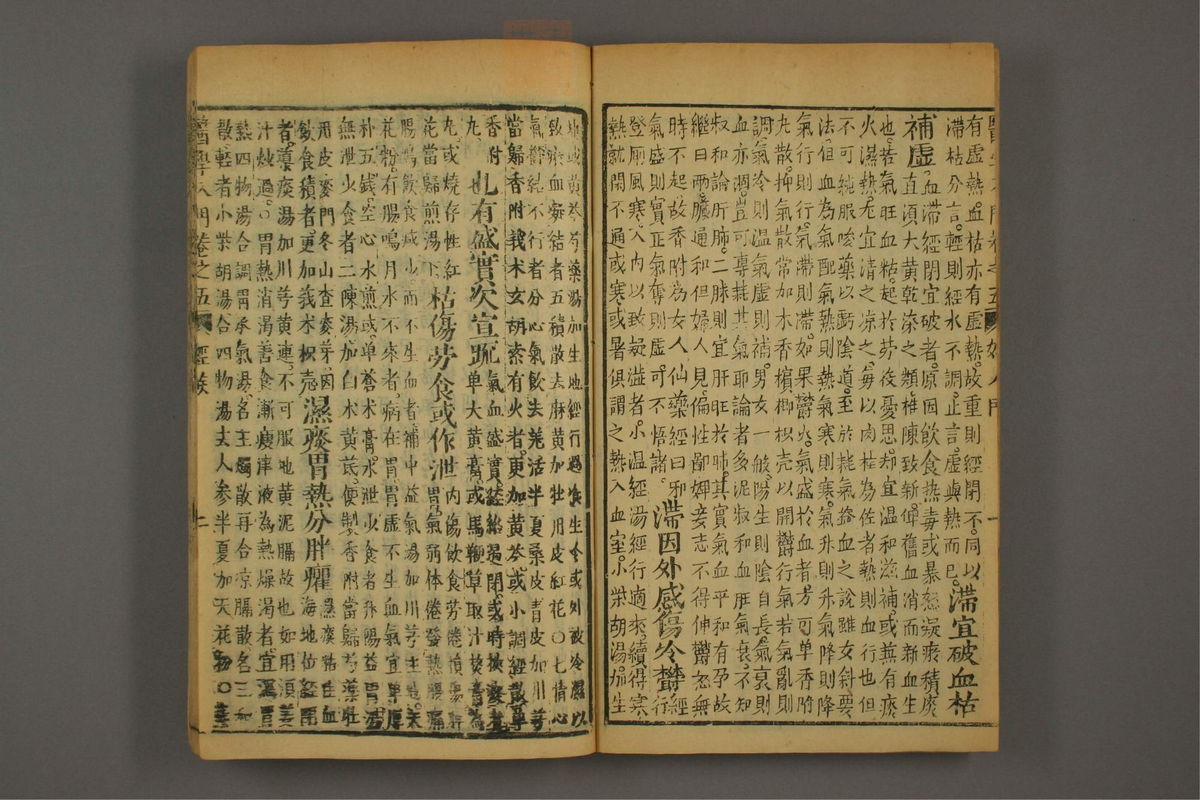 醫學入門卷之五 婦人門 一
有虛熱。血枯亦有虛熱。故重則經閉不同。以
滯枯分言。輕則經水不調。止言虛與熱而已。
滯宜破血枯
補虛
血滯經閉宜破者。原因飲食熱毒或暴怒凝瘀積痰
直須大黃乾漆之類。推陳致新。俾舊血消而新血生
也。若氣旺血枯。起於勞役憂思。却宜溫和滋補。或兼有痰
火濕熱。尤宜清之凉之。每以肉桂為佐者。熱則血行也。但
不可純服峻藥以虧陰道。至於耗氣益血之說。雖女科要
法。但血為氣配。氣熱則熱。氣寒則寒。氣升則升。氣降則降
氣行則行。氣滯則滯。如果鬱火。氣盛於血者。方可單香附
丸散。抑氣散。常加木香檳榔枳壳以開鬱行氣。若氣亂則
調。氣冷則溫。氣虛則補。男女一般。陽生則陰自長。氣衰則
血亦涸。豈可專耗其氣耶。論者多泥叔和血旺氣衰。不知
叔和論肝肺。二脉則宜肝旺於肺。其實氣血平和有孕。故
繼曰兩臟通和。但婦人見偏性鄙。婢妾志不得伸。鬱怒無
時不起。故香附為女人仙藥。經曰邪
氣盛則實。正氣奪則虛。可不悟諸。
滯因外感傷冷鬱
經
行
登厠。風寒入內。以致凝溢者。小溫經湯。經行適來。續得寒
熱。就閉不通。或寒或暑。俱謂之熱入血室。小柴胡湯。加生
地或黃芩芍藥湯加生地經行過食生冷或外被冷濕以
致瘀血凝結者五積散去麻黃加牡丹皮紅花○七情心
氣鬱結不行者分心氣飲去羌活半夏桑皮青皮加川芎
當歸香附莪朮玄胡索有火者更加黃芩或小調經散單
香附
丸
也有盛實次宣踈
氣血盛實經絡遏閉或時
單大黃膏或馬鞭草取汁熬膏為
丸或燒存性紅
花當歸煎湯下
枯傷勞食或作泄
內傷飲食勞倦損脾
胃氣弱体倦發熱腰痛
腸鳴飲食减少而不生血者補中益氣湯加川芎生天
花粉有腸鳴月水不來者病在胃胃虛不生血氣宜單厚
朴五錢空心水煎或单蒼朮膏求泄火食者升陽益胃湯
無泄火食者二陳湯加白朮黃芪便製香附當歸芍藥牡
丹皮麥門冬山查麥芽因
飲食積者更加莪朮枳壳
濕痰胃熱分胖癯
濕痰粘住血
海地位經閉
者導痰湯加川芎黃連不可服地黃泥膈故也如用須姜
汁炒過○胃熱消渴善食漸瘦津液為熱燥渴者宜瀉胃
熱四物湯合調胃承氣湯名玉燭散再合凉膈散名三和
散輕者小柴胡湯合四物湯去人參半夏加天花粉○姜
醫學入門卷之五 經候 二